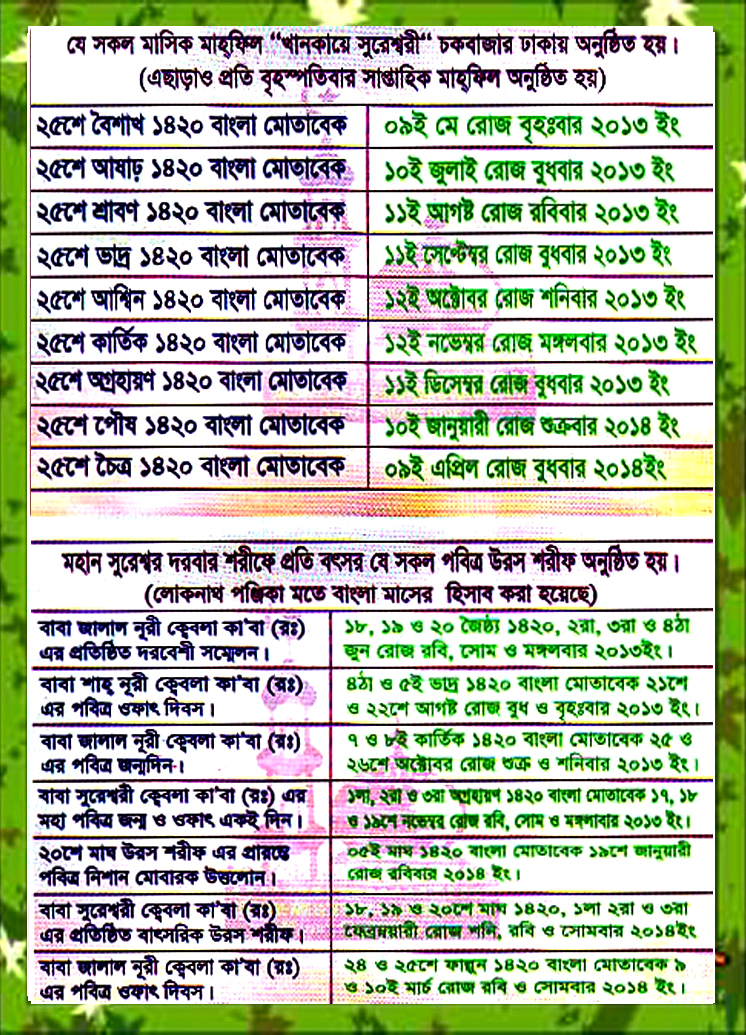 যে সকল মাসিক মাহ্‌ফিল “খানকায়ে সুরেশ্বরী“ চকবাজার ঢাকায় অনুষ্ঠিত হয়।
(এছাড়াও প্রতি বৃহস্পতিবার সাপ্তাহিক মাহ্‌ফিল অনুষ্ঠিত হয়)
২৫শে বৈশাখ ১৪২০ বাংলা মোতাবেক ০৯ই মে রোজ বৃহঃবার ২০১৩ ইং
২৫শে আষাঢ় ১৪২০ বাংলা মোতাবেক ১০ই জুলাই রোজ বুধবার ২০১৩ ইং
২৫শে শ্রাবণ ১৪২০ বাংলা মোতাবেক ১১ই আগষ্ট রোজ রবিবার ২০১৩ ইং
২৫শে ভাদ্র ১৪২০ বাংলা মোতাবেক ১১ই সেপ্টেম্বর রোজ বুধবার ২০১৩ ইং
২৫শে আশ্বিন ১৪২০ বাংলা মোতাবেক ১২ই অক্টোবর রোজ শনিবার ২০১৩ ইং
২৫শে কার্তিক ১৪২০ বাংলা মোতাবেক ১২ই নভেম্বর রোজ মঙ্গলবার ২০১৩ ইং
২৫শে অগ্রহায়ণ ১৪২০ বাংলা মোতাবেক ১১ই ডিসেম্বর রোজ বুধবার ২০১৩ ইং
২৫শে পৌষ ১৪২০ বাংলা মোতাবেক ১০ই জানুয়ারী রোজ শুক্রবার ২০১৪ ইং
২৫শে চৈত্র ১৪২০ বাংলা মোতাবেক ০৯ই এপ্রিল রোজ বুধবার ২০১৪ইং
মহান সুরেশ্বর দরবার শরীফে প্রতি বৎসর যে সকল পবিত্র উরস শরীফ অনুষ্ঠিত হয়।
(লোকনাথ পঞ্জিকা মতে বাংলা মাসের হিসাব করা হয়েছে)
বাবা জালাল নূরী ক্বেবলা কা'বা (রঃ)
এর প্রতিষ্ঠিত দরবেশী সম্মেলন।
১৮, ১৯ ও ২০ জৈষ্ঠ্য ১৪২০, ২রা, ৩রা ও ৪ঠা
জুন রোজ রবি, সোম ও মঙ্গলবার ২০১৩ইং।
বাবা শাহ্ নূরী ক্বেবলা কা'বা (রঃ)
এর পবিত্র ওফাৎ দিবস।
৪ঠা ও ৫ই ভাদ্র ১৪২০ বাংলা মোতাবেক ২১শে
ও ২২শে আগষ্ট রোজ বুধ ও বৃহঃবার ২০১৩ ইং।
বাবা জালাল নূরী ক্বেবলা কা'বা (রঃ)
এর পবিত্র জন্মদিন।
৭ ও ৮ই কার্তিক ১৪২০ বাংলা মোতাবেক ২৫ ও
২৬শে অক্টোবর রোজ শুক্র ও শনিবার ২০১৩ ইং।
বাবা সুরেশ্বরী ক্বেবলা কা'বা (রঃ) এর
মহা পবিত্র জন্ম ও ওফাৎ একই দিন।
১লা, ২রা ও ৩রা অগ্রহায়ণ ১৪২০ বাংলা মোতাবেক ১৭, ১৮
ও ১৯শে নভেম্বর রোজ রবি, সোম ও মঙ্গলাবার ২০১৩ ইং।
২০শে মাঘ উরস শরীফ এর প্রারম্ভে
পবিত্র নিশান মোবারক উত্তলোন।
০৫ই মাঘ ১৪২০ বাংলা মোতাবেক ১৯শে জানুয়ারী
রোজ রবিবার ২০১৪ ইং।
বাবা সুরেশ্বরী ক্বেবলা কা'বা (রঃ)
এর প্রতিষ্ঠিত বাৎসরিক উরস শরীফ।
১৮, ১৯ ও ২০শে মাঘ ১৪২০, ১লা ২রা ও ৩রা
ফেব্রুয়ারী রোজ শনি, রবি ও সোমবার ২০১৪ইং
বাবা জালাল নূরী ক্বেবলা কা'বা (রঃ)
এর পবিত্র ওফাৎ দিবস।
২৪ ও ২৫শে ফাল্গুন ১৪২০ বাংলা মোতাবেক ৯
ও ১০ই মার্চ রোজ রবি ও সোমবার ২০১৪ ইং।